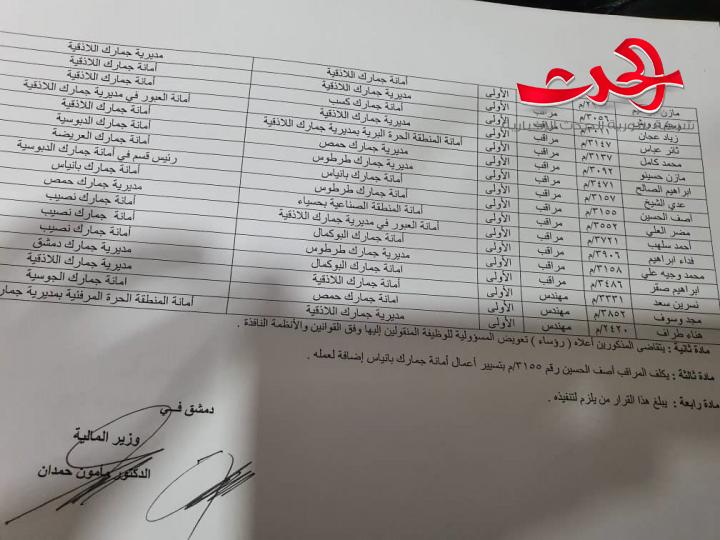 الحدث
أمانة جمارك اللاذقية مديرية جمارك اللاذقية
الأولى مديرية جمارك اللاذقية أمانة جمارك اللاذقية
مازن مراقب الأولى أمانة جمارك كسب أمانة جمارك اللاذقية
٣٠٥٦/م مراقب الأولى مديرية جمارك اللاذقية أمانة العبور في مديرية جمارك اللاذقية
زياد عجان مراقب الأولى أمانة المنطقة الحرة البرية بمديرية جمارك اللاذقية أمانة جمارك اللاذقية
ثائر عباس ٣١٤٧/م مراقب الأولى مديرية جمارك حمص أمانة جمارك الدبوسية
محمد كامل ٣١٣٧/م مراقب الأولى مديرية جمارك طرطوس أمانة جمارك العريضة
مازن حسينو ٣٠٩٢/م مراقب الأولى أمانة جمارك بانياس رئيس قسم في أمانة جمارك الدبوسية
ابراهيم الصالح ٣٤٧١/م مراقب الأولى أمانة جمارك طرطوس أمانة جمارك بانياس
عدي الشيخ ٣١٥٧/م مراقب الأولى أمانة المنطقة الصناعية بحسياء مديرية جمارك حمص
آصف الحسين ٣١٥٥/م مراقب الأولى أمانة العبور في مديرية جمارك اللاذقية أمانة جمارك نصيب
مضر العلي ٣٥٥٢/م مراقب الأولى أمانة جمارك البوكمال أمانة جمارك نصيب
أحمد سلهب ٣٧٢١/م مراقب الأولى مديرية جمارك طرطوس أمانة جمارك نصيب
فداء ابراهيم ٣٩٠٦/م مراقب الأولى أمانة جمارك البوكمال مديرية جمارك دمشق
محمد وجيه علي ٣١٥٨/م مراقب الأولى أمانة جمارك اللاذقية مديرية جمارك اللاذقية
ابراهيم صقر ٣٤٨٦/م مراقب الأولى أمانة جمارك حمص أمانة جمارك الجوسية
نسرين سعد ٣٣٣١/م مهندس الأولى مديرية جمارك اللاذقية أمانة المنطقة الحرة المرفئية بمديرية جمار
مجد وسوف ٣٨٥٢/م مهندس الأولى
هناء طراف ٢٤٢٠/م مهندس الأولى
مادة ثانية : يتقاضى المذكورين أعلاه ( رؤساء ) تعويض المسؤولية للوظيفة المنقولين إليها وفق القوانين والأنظمة النافذة .
مادة ثالثة : يكلف المراقب آصف الحسين رقم ٣١٥٥/م بتسيير أعمال أمانة جمارك بانياس إضافة لعمله .
مادة رابعة : يبلغ هذا القرار من يلزم لتنفيذه .
دمشق في
وزير المالية
الدكتور مأمون حمدان